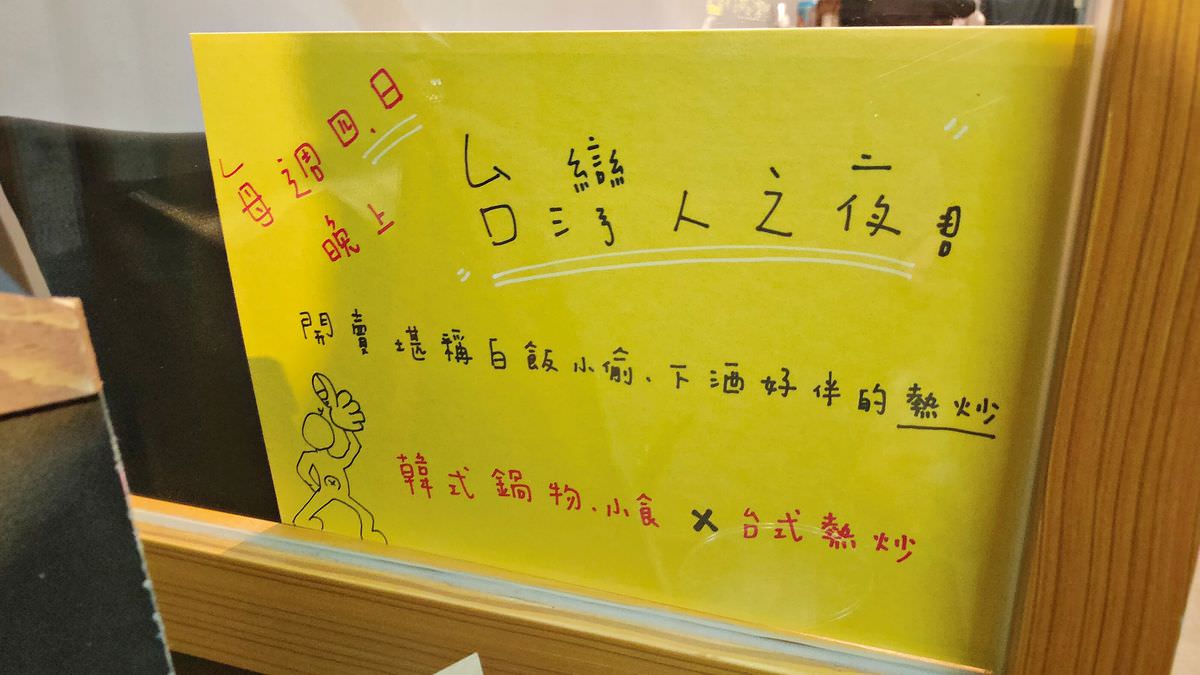 每週四、日
晚上
台灣人之夜!
開賣堪稱白飯小偷、下酒好伴的熱炒
韓式鍋物、小食 × 台式熱炒